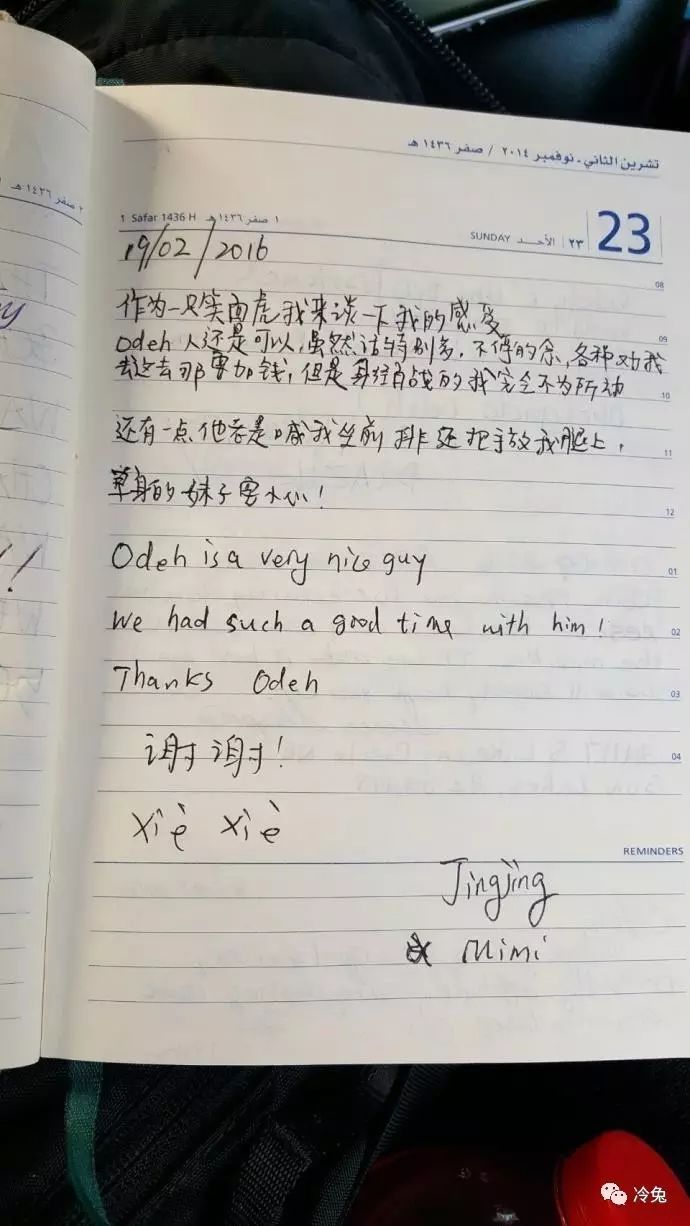 تشرين الثاني - نوفمبر ٢٠١٤ / صفر ١٤٣٦ هـ
صفر ١٤٣٦ هـ
1 Safar 1436 H ١ صفر ١٤٣٦ هـ
SUNDAY الأحد ٢٣ 23
19/02/2016
08
作为一只笑面虎我来谈一下我的感受
09
Odeh 人还是可以,虽然话特别多,不停的念,各种劝我
去这去那要加钱,但是身经百战的我完全不为所动
10
还有一点他老是喊我坐前排还把手放我腿上,
11
单身的妹子要小心!
12
Odeh is a very nice guy
01
We had such a good time with him!
02
Thanks Odeh
03
谢谢!
04
xiè xiè
REMINDERS
Jingjing
Mimi
冷兔